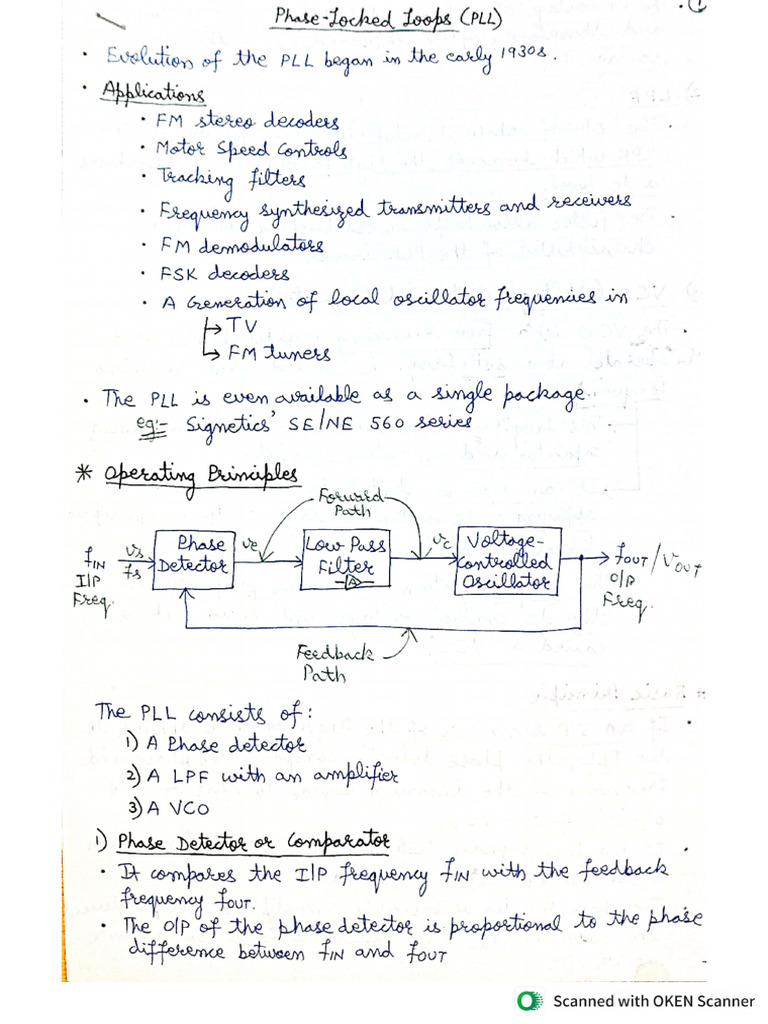 Phase-Locked Loops (PLL)
1
• Evolution of the PLL began in the early 1930s.
• Applications
• FM stereo decoders
• Motor Speed Controls
• Tracking filters
• Frequency synthesized transmitters and receivers
• FM demodulators
• FSK decoders
• A Generation of local oscillator frequencies in
TV
FM tuners
• The PLL is even available as a single package.
eg:- Signetics' SE/NE 560 series
* Operating Principles
Forward
Path
fIN
I|P
Freq.
Vs
fs
Phase
Detector
Ve
Low Pass
Filter
A
Vc
Voltage-
Controlled
Oscillator
fOUT/VOUT
O|P
Freq.
Feedback
Path
The PLL consists of:
1) A Phase detector
2) A LPF with an amplifier
3) A VCO
1) Phase Detector or Comparator
• It compares the I|P frequency fIN with the feedback
frequency fOUT.
• The O|P of the phase detector is proportional to the phase
difference between fIN and fOUT
Scanned with OKEN Scanner